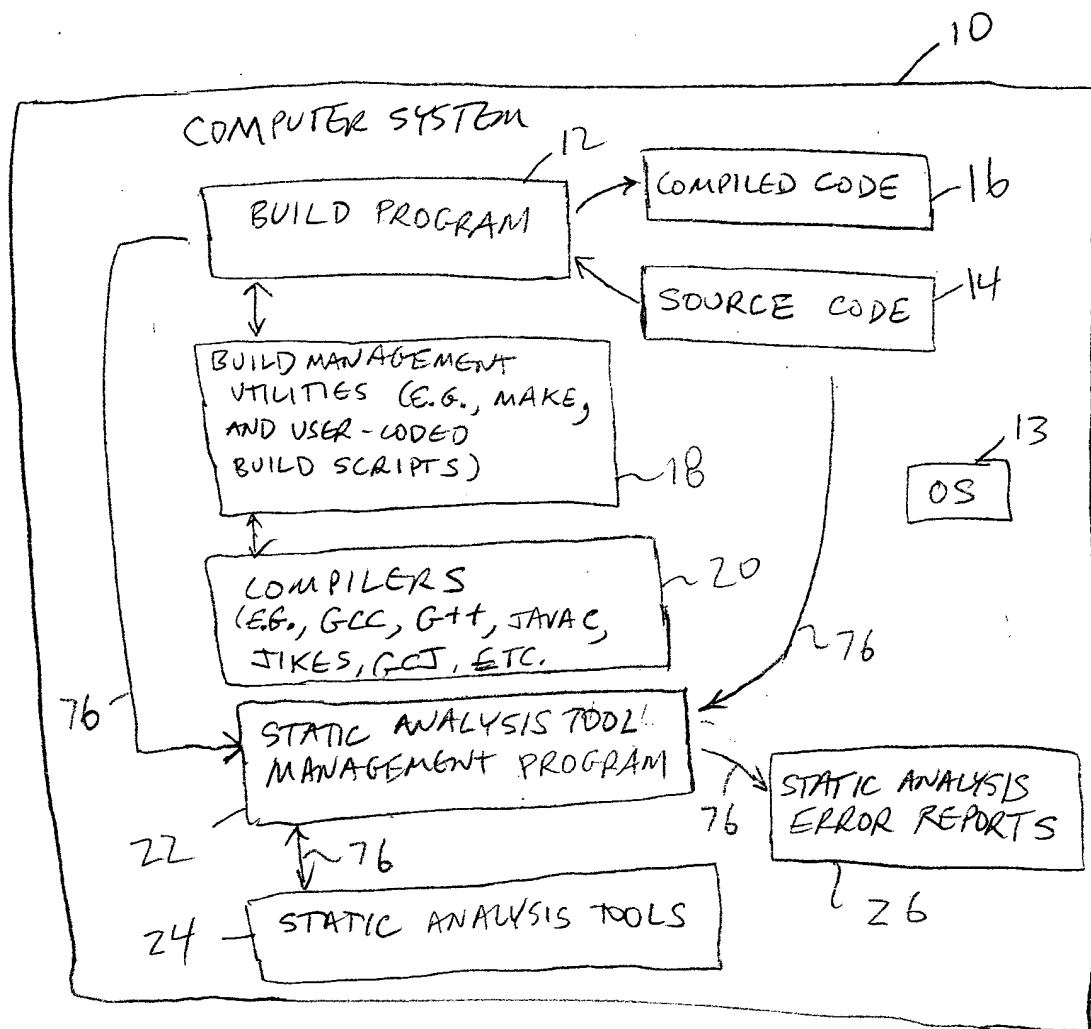 10
COMPUTER SYSTEM
12
BUILD PROGRAM
COMPILED CODE
16
SOURCE CODE
14
BUILD MANAGEMENT
UTILITIES (E.G., MAKE,
AND USER-CODED
BUILD SCRIPTS)
18
13
OS
COMPILERS
(E.G., GCC, G++, JAVAC,
JIKES, GCJ, ETC.
20
76
76
STATIC ANALYSIS TOOL
MANAGEMENT PROGRAM
22
76
STATIC ANALYSIS
ERROR REPORTS
26
76
STATIC ANALYSIS TOOLS
24